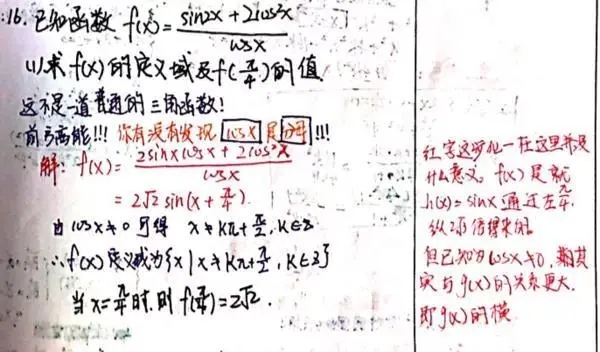 16. 已知函数 f(x) = (sin2x + 2cos²x) / cosx
(1) 求 f(x) 的定义域及 f(π/4) 的值
这不是一道普通的三角函数!
前方高能!!! 你有没有发现 cosx 是分母!!!
解: f(x) = (2sinxcosx + 2cos²x) / cosx
= 2√2 sin(x + π/4)
由 cosx ≠ 0 可得 x ≠ kπ + π/2, k∈Z
∴ f(x) 定义域为 {x | x ≠ kπ + π/2, k∈Z}
当 x = π/4 时, 则 f(π/4) = 2√2.
红字这步化一在这里并没
什么意义. f(x) 是就
h(x) = sinx 通过左 π/4.
纵 2√2 倍得来的.
但已知 cosx ≠ 0.
实与 g(x) 的关系更大.
即 g(x) 的横